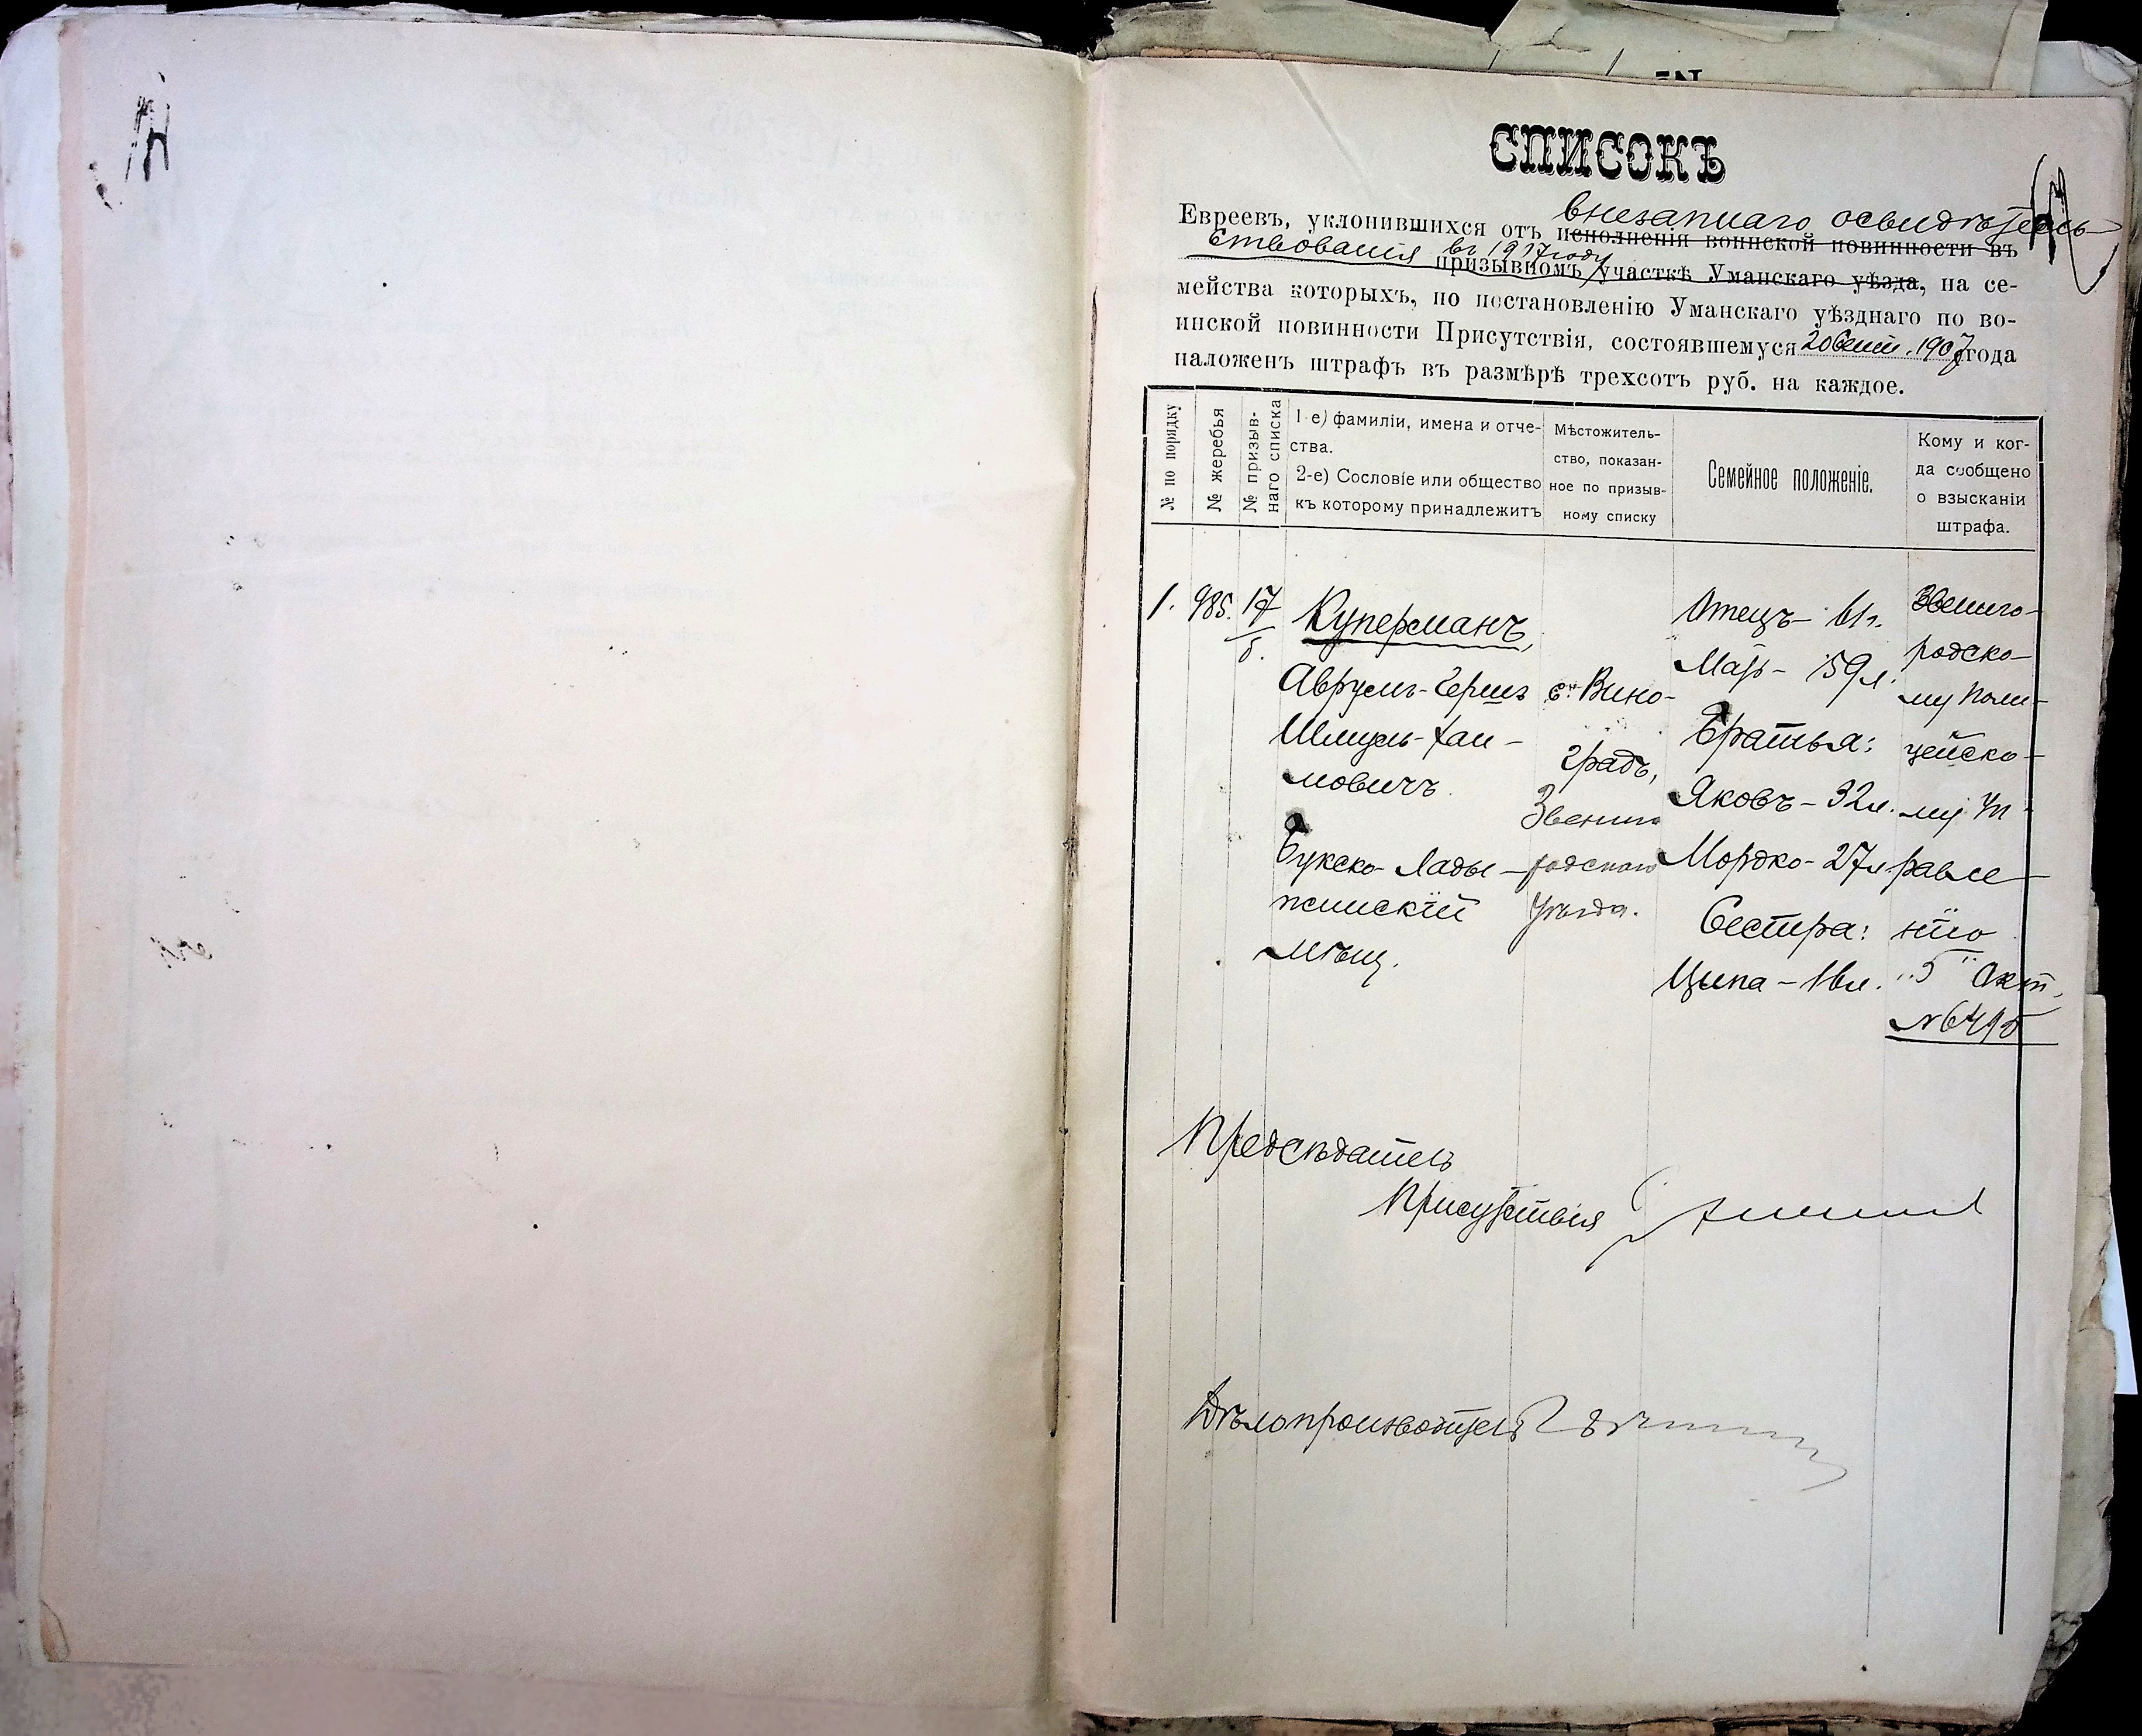 СПИСОКЪ
внезапнаго освидѣтель-
Евреевъ, уклонившихся отъ исполненія воинской повинности въ
ствованія въ 1907 году
призывномъ участкѣ Уманскаго уѣзда, на се-
мейства которыхъ, по постановленію Уманскаго уѣзднаго по во-
инской повинности Присутствія, состоявшемуся 20 Сент. 1907 года
наложенъ штрафъ въ размѣрѣ трехсотъ руб. на каждое.
№ по порядку
№ жеребья
№ призыв-
наго списка
1-е) фамиліи, имена и отче-
ства.
2-е) Сословіе или общество
къ которому принадлежитъ
Мѣстожитель-
ство, показан-
ное по призыв-
ному списку
Семейное положеніе.
Кому и ког-
да сообщено
о взысканіи
штрафа.
1.
985.
17
Куперманъ,
Аврумъ-Гершъ
Шмуль-Хаи-
мовичъ
Букско-Лады-
жинскій
мѣщ.
с. Вино-
градъ,
Звениго
родскаго
уѣзда.
Отецъ - 61 г.
Мать - 59 л.
Братья:
Яковъ - 32 л.
Мордко - 27 л.
Сестра:
Ципа - 16 л.
Звениго-
родско-
му Поли-
цейско-
му Уп-
равле-
нію
"5" Окт.
№ 6495
Предсѣдатель
Присутствія
Дѣлопроизводитель